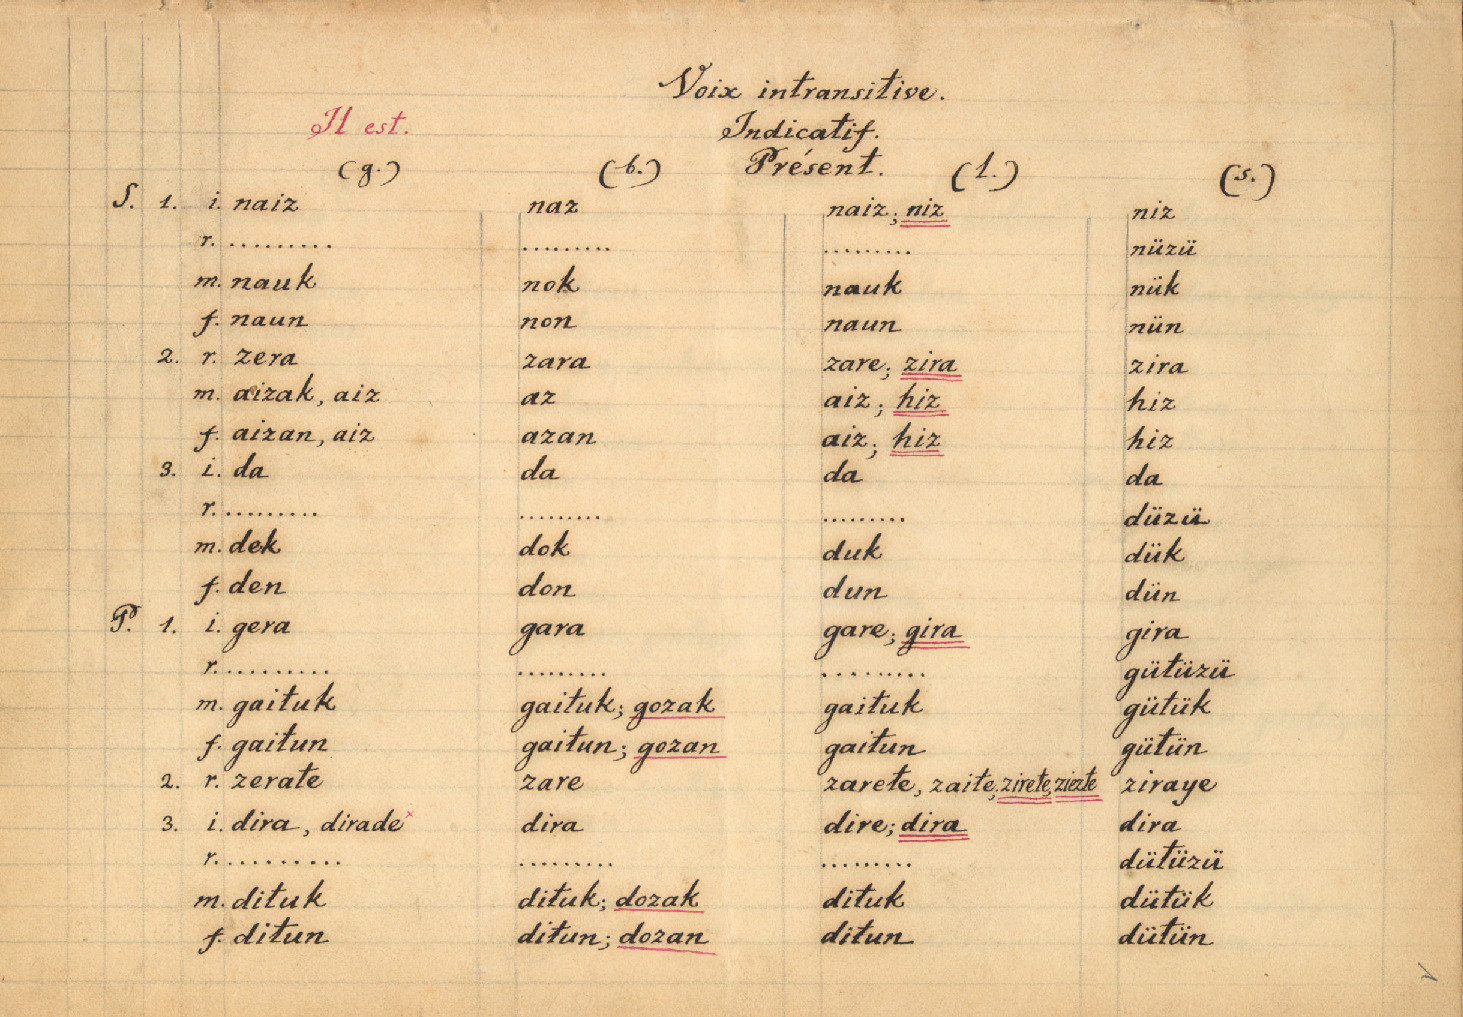 Voix intransitive.
Il est. Indicatif.
(g.) (b.) Présent. (l.) (s.)
S. 1. i. naiz naz naiz; niz niz
r. .......... ......... ......... nüzü
m. nauk nok nauk nük
f. naun non naun nün
2. r. zera zara zare; zira zira
m. aizak, aiz az aiz; hiz hiz
f. aizan, aiz azan aiz; hiz hiz
3. i. da da da da
r. ......... ......... ......... düzü
m. dek dok duk dük
f. den don dun dün
P. 1. i. gera gara gare; gira gira
r. .......... ......... ......... gütüzü
m. gaituk gaituk; gozak gaituk gütük
f. gaitun gaitun; gozan gaitun gütün
2. r. zerate zare zarete, zaite; zirete, zizte ziraye
3. i. dira, dirade× dira dire; dira dira
r. .......... ......... ......... dütüzü
m. dituk dituk; dozak dituk dütük
f. ditun ditun; dozan ditun dütün